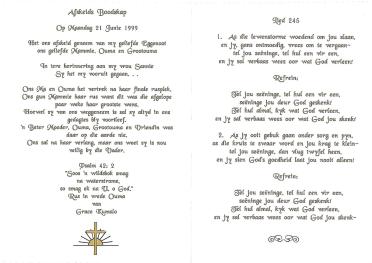 Afskeids Boodskap
Op Maandag 21 Junie 1999
Het ons afskeid geneem van my geliefde Eggenoot
ons geliefde Mammie, Ouma en Grootouma
In tere herinnering aan my vrou Sannie
Sy het my vooruit gegaan. . .
Ons Ma en Ouma het vertrek na haar finale rusplek,
Ons gun Mammie haar rus want dit was die afgelope
paar weke haar grootste wens,
Hoewel sy van ons weggeneem is sal sy altyd in ons
gedagtes bly voortleef.
'n Beter Moeder, Ouma, Grootouma en Vriendin was
daar op die aarde nie,
Ons sal na haar verlang, maar ons weet sy is nou
veilig by die Vader.
Psalm 42: 2
"Soos 'n wildsbok smag
na waterstrome,
so smag ek na U, o God."
Rus in vrede Ouma
van
Grace
Lied 245
1. As die lewenstorme woedend om jou slaan,
en jy, gans ontmoedig, vrees om te vergaan-
tel jou seëninge, tel hul een vir een,
en jy sal verbaas wees oor wat God verleen!
Refrein:
Tel jou seëninge, tel hul een vir een,
seëninge jou deur God geskenk!
Tel hul almal, kyk wat God verleen,
en jy sal verbaas wees oor wat God jou skenk!
2. As jy ooit gebuk gaan onder sorg en pyn,
as die kruis te swaar word en jou krag te klein-
tel jou seëninge, dan vlug twyfel heen,
en jy sien God's goedheid laat jou nooit alleen!
Refrein:
Tel jou seëninge, tel hul een vir een,
seëninge jou deur God geskenk!
Tel hul almal, kyk wat God verleen,
en jy sal verbaas wees oor wat God jou skenk-